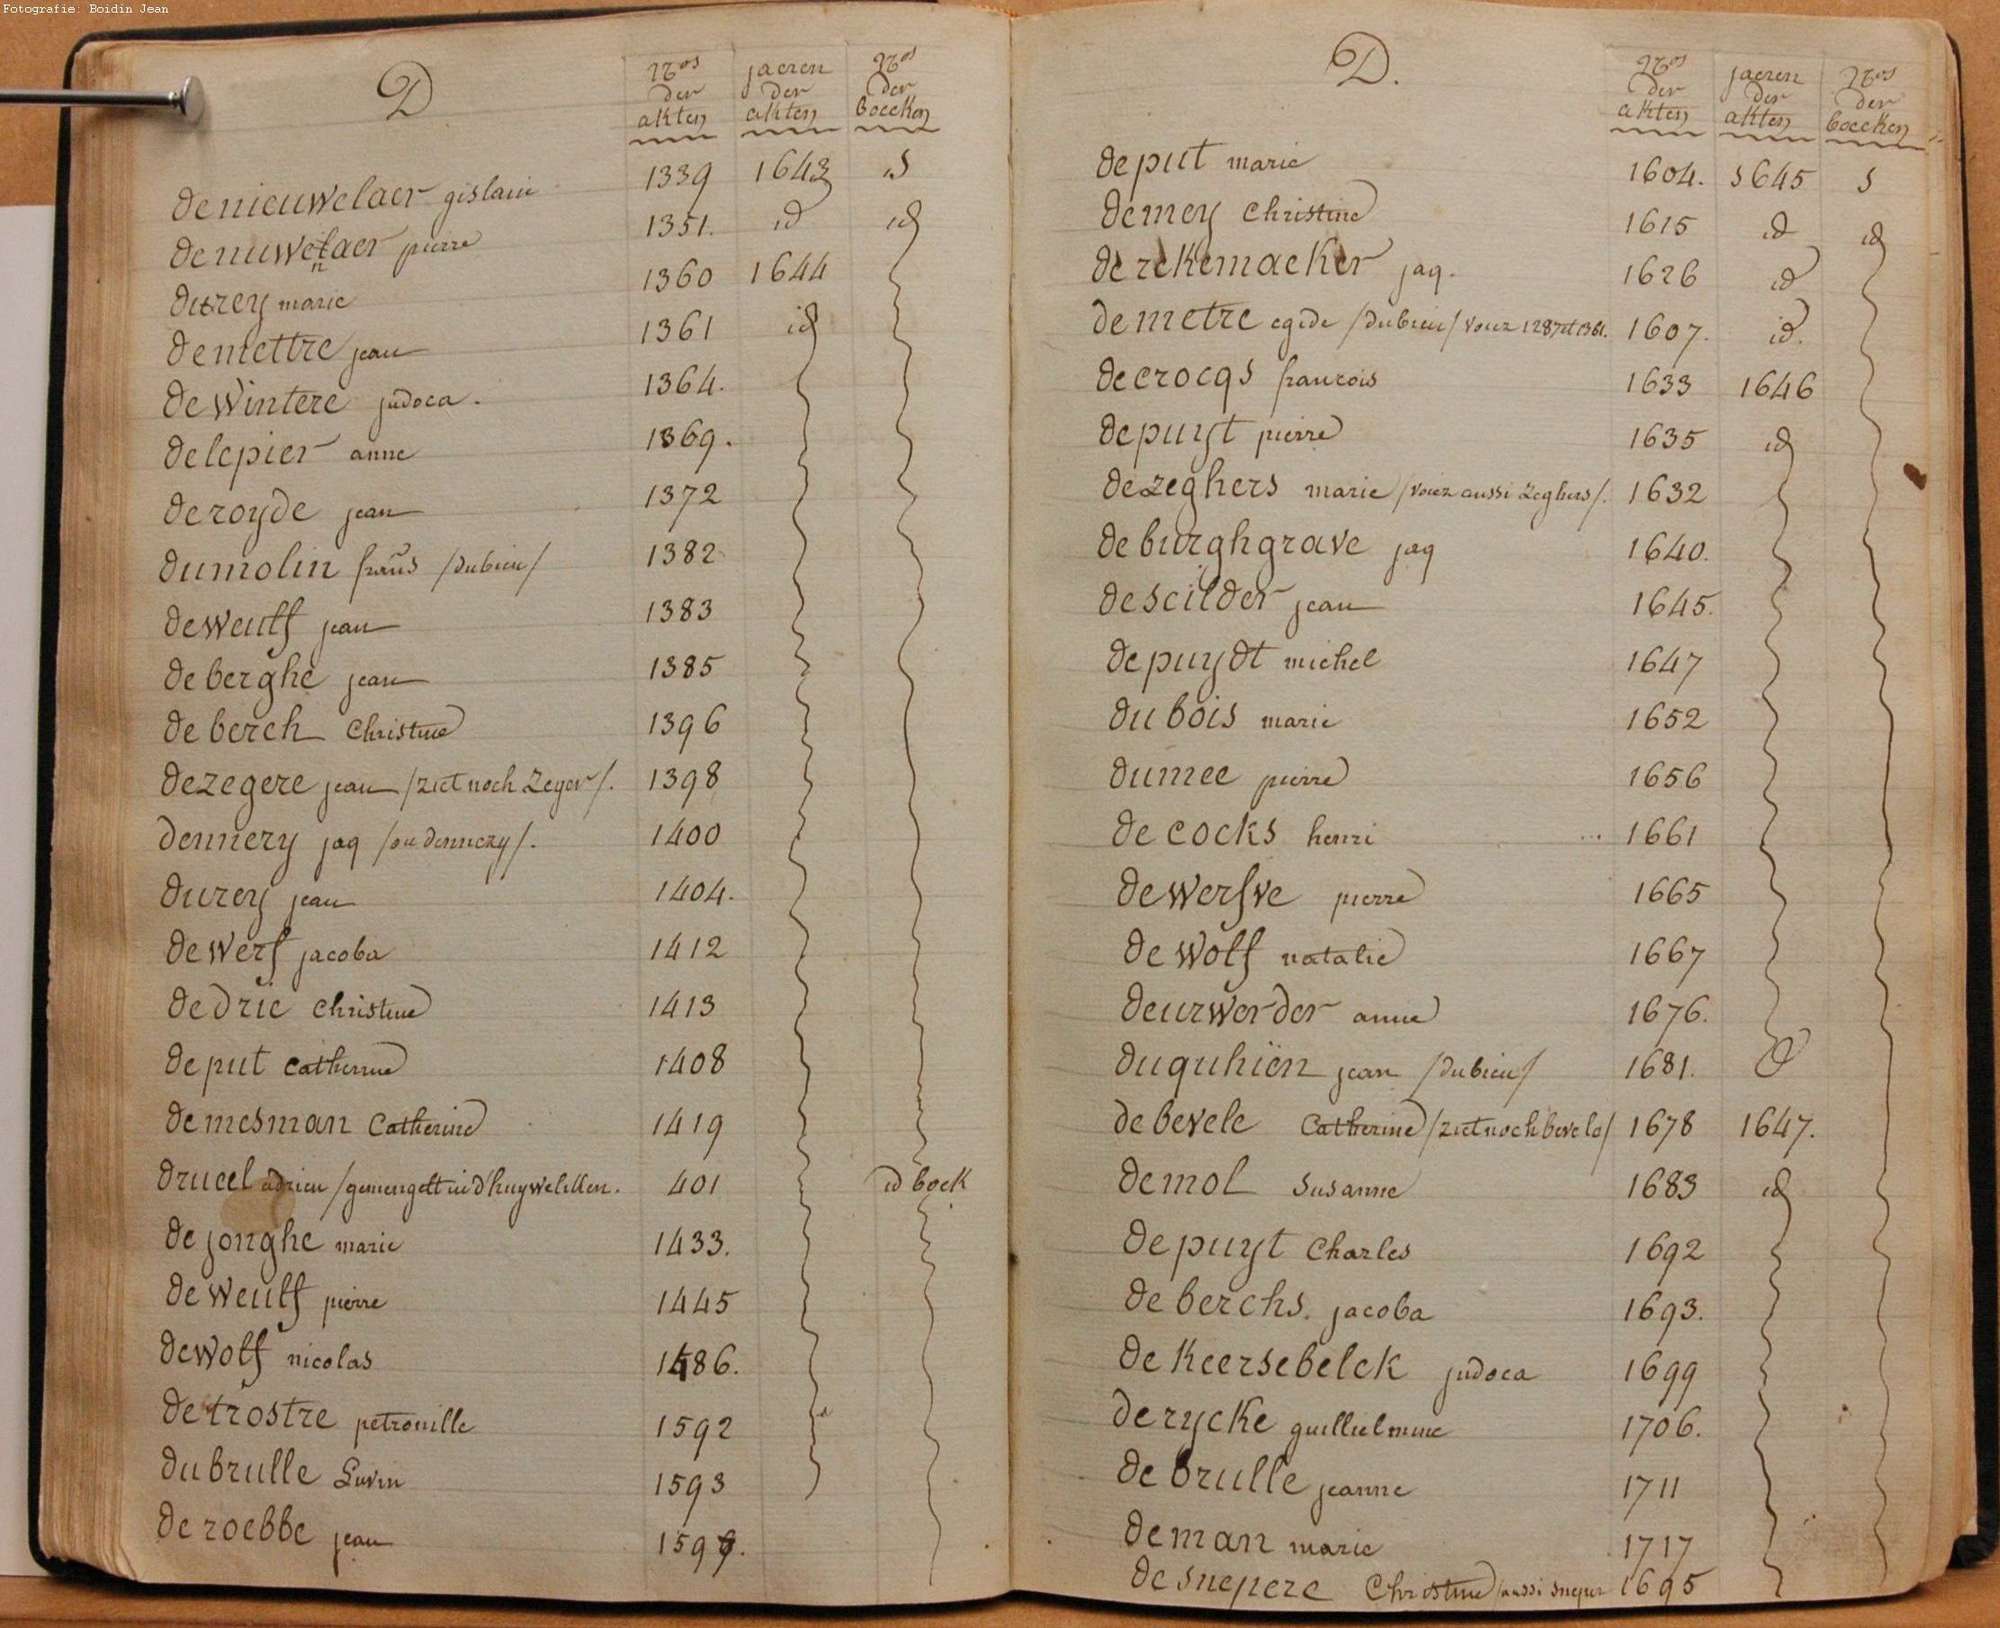 Fotografie: Boidin Jean
D
Nos der akten
jaeren der akten
Nos der boecken
denieuwelaer gislain 1339 1643 5
denuwelaer pierre 1351. id id
n
durey marie 1360 1644
demettre jean 1361 id
dewintere judoca. 1364.
delepier anne 1369.
deroyde jean 1372
dumolin frans /dubieu/ 1382
deweulf jean 1383
deberghe jean 1385
deberch Christine 1396
dezegere jean /ziet noch Zeger/. 1398
dennery jaq /ou dennezy/. 1400
durey jean 1404.
dewerf jacoba 1412
dedrie Christine 1413
deput Catherine 1408
demesman Catherine 1419
drucel adrien /gemengelt in d'huywelken. 401 id boek
dejonghe marie 1433.
deweulf pierre 1445
dewolf nicolas 1486.
detrostre petronille 1592
dubrulle Livin 1593
deroebbe jean 1599.
D.
Nos der akten
jaeren der akten
Nos der boecken
deput marie 1604. 1645 5
demey Christine 1615 id id
derekemaeker jaq. 1626 id
demetre egide /dubieu/ voiez 1287 et 1361. 1607. id.
decrocqs francois 1633 1646
depuyt pierre 1635 id
dezeghers marie /voiez aussi Zeghers/. 1632
deburghgrave jaq 1640.
descilder jean 1645.
depuydt michel 1647
dubois marie 1652
dumee pierre 1656
decocks henri ... 1661
dewersve pierre 1665
dewolf natalie 1667
deurwerder anne 1676.
duquhiën jean /dubieu/ 1681.
debevele Catherine /ziet noch bevele/ 1678 1647.
demol Susanne 1683 id
depuyt Charles 1692
deberchs. jacoba 1693.
dekeersebelck judoca 1699
derycke guillielmine 1706.
debrulle jeanne 1711
deman marie 1717
desnepere Christine /aussi sneper 1695